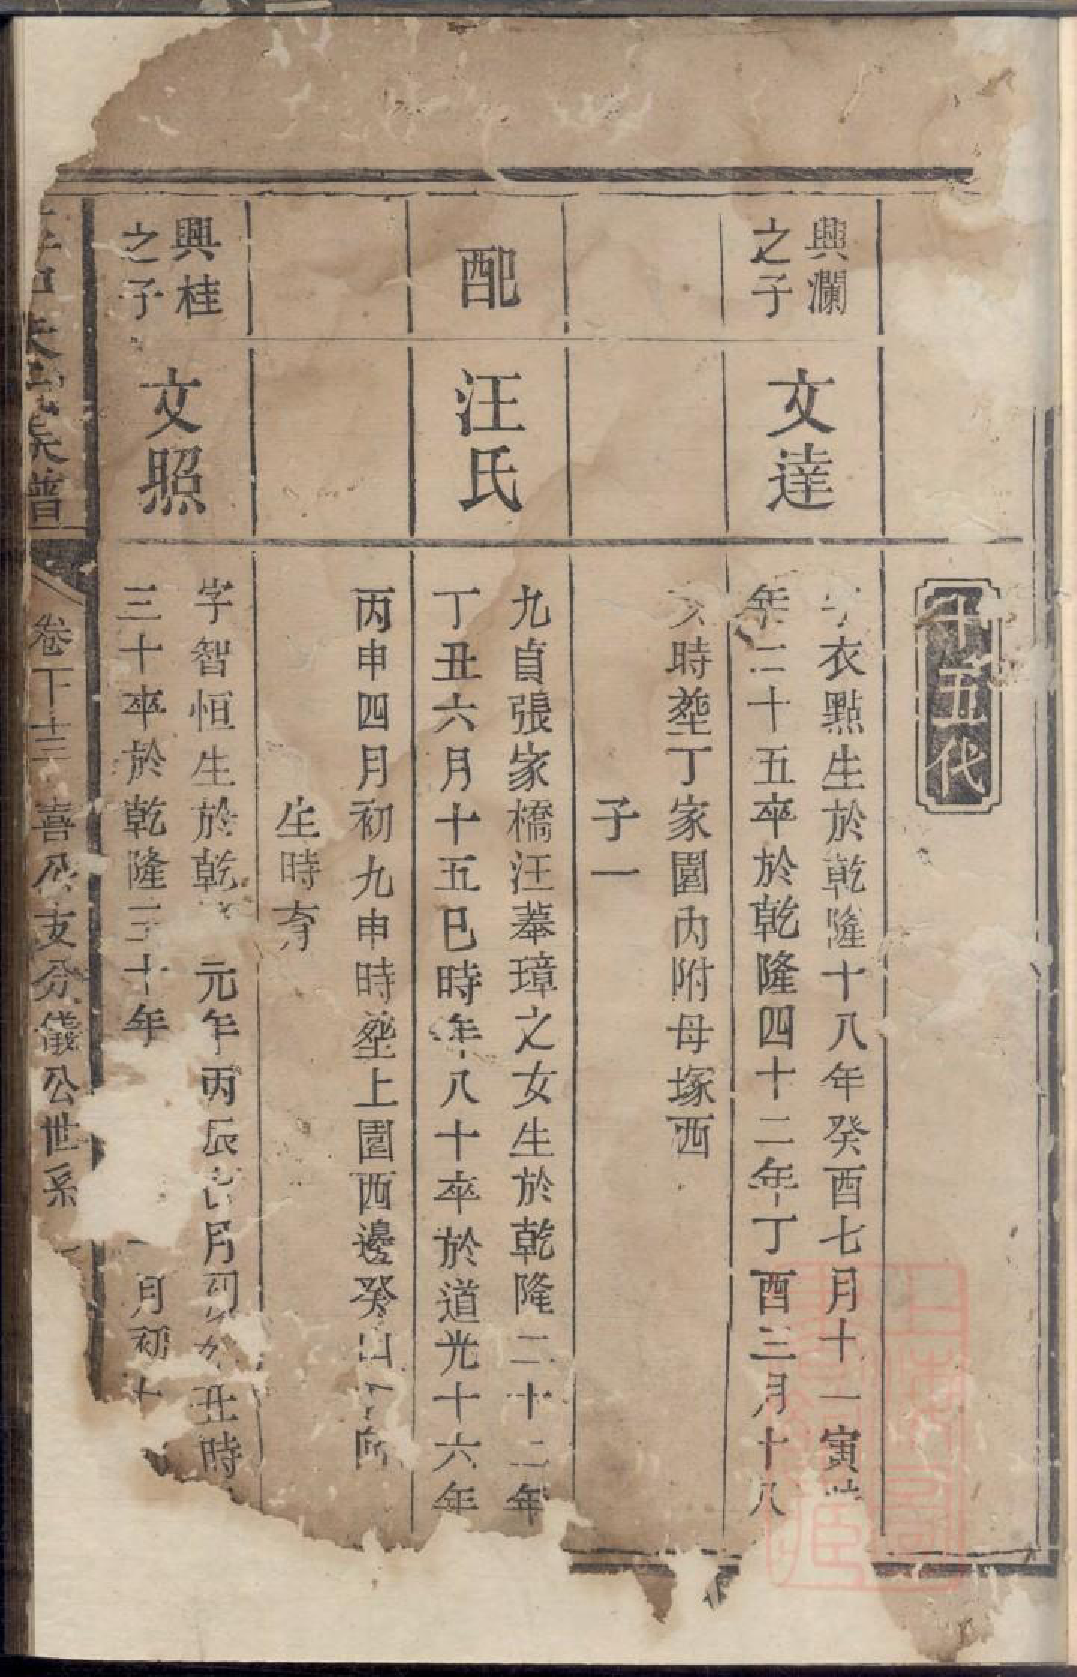 十五代
興瀾
之子
文達
字衣點生於乾隆十八年癸酉七月十一寅時
年二十五卒於乾隆四十二年丁酉三月十八
時塟丁家園內附母塚西
子一
配
汪氏
九貞張家橋汪摹璋之女生於乾隆二十二年
丁丑六月十五巳時年八十卒於道光十六年
丙申四月初九申時塟上園西邊癸山丁向
生時育
興桂
之子
文照
字智恒生於乾元年丙辰月初丑時
三十卒於乾隆三十年
月初十
朱氏族譜
卷下十三
喜公支分儀公世系